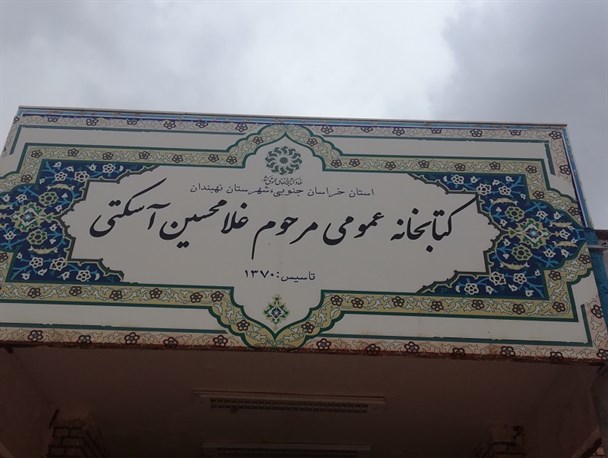 استان خراسان جنوبی، شهرستان نهبندان
کتابخانه عمومی مرحوم غلامحسین آسکتی
تاسیس: ۱۳۷۰